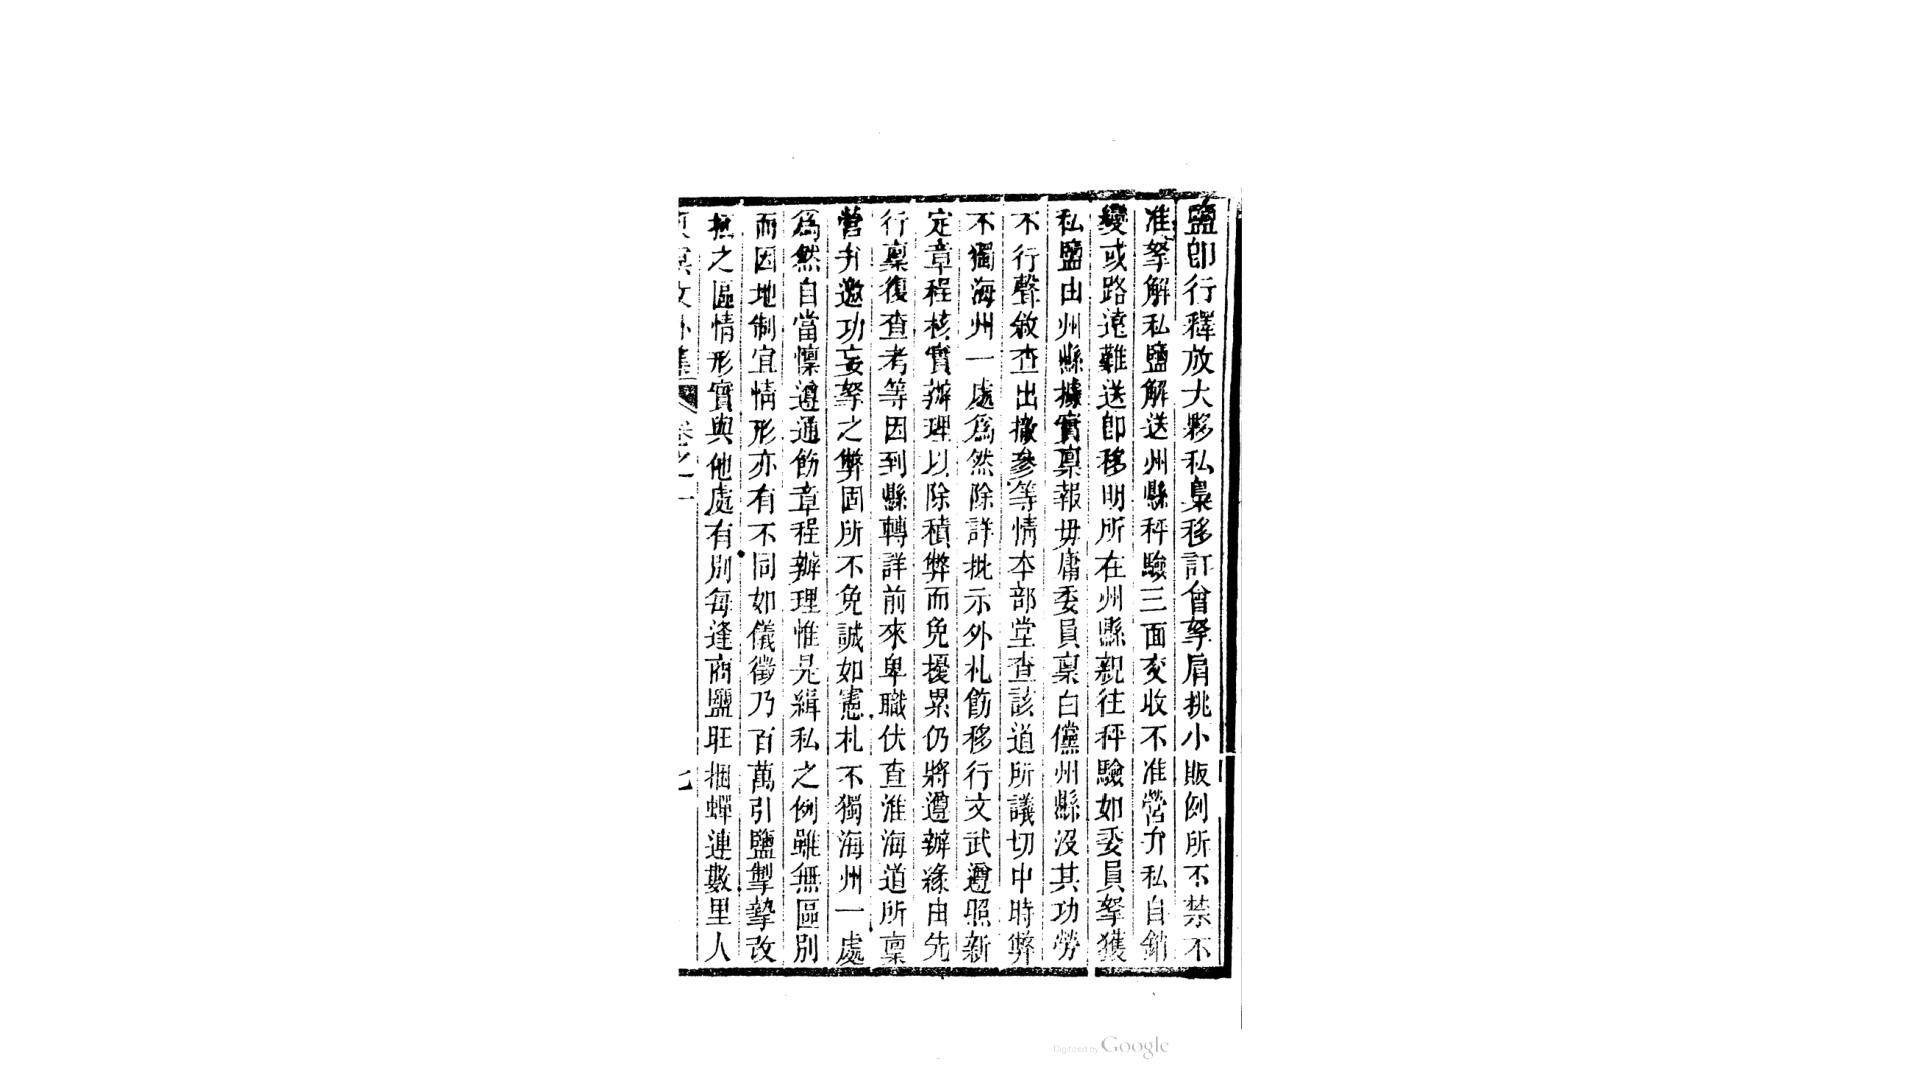 鹽即行釋放大夥私梟移訂會拏肩挑小販例所不禁不
准拏解私鹽解送州縣秤驗三面交收不准營弁私自銷
變或路遠難送即移明所在州縣親往秤驗如委員拏獲
私鹽由州縣據實稟報毋庸委員稟白儻州縣沒其功勞
不行聲敘查出撤參等情本部堂查該道所議切中時弊
不獨海州一處為然除詳批示外札飭移行文武遵照新
定章程核實辦理以除積弊而免擾累仍將遵辦緣由先
行稟復查考等因到縣轉詳前來卑職伏查淮海道所稟
營弁邀功妄拏之弊固所不免誠如憲札不獨海州一處
為然自當懍遵通飭章程辦理惟是緝私之例雖無區別
而因地制宜情形亦有不同如儀徵乃百萬引鹽掣摯改
捆之區情形實與他處有別每逢商鹽旺捆蟬連數里人
文外集 卷之一 七
Digitized by Google